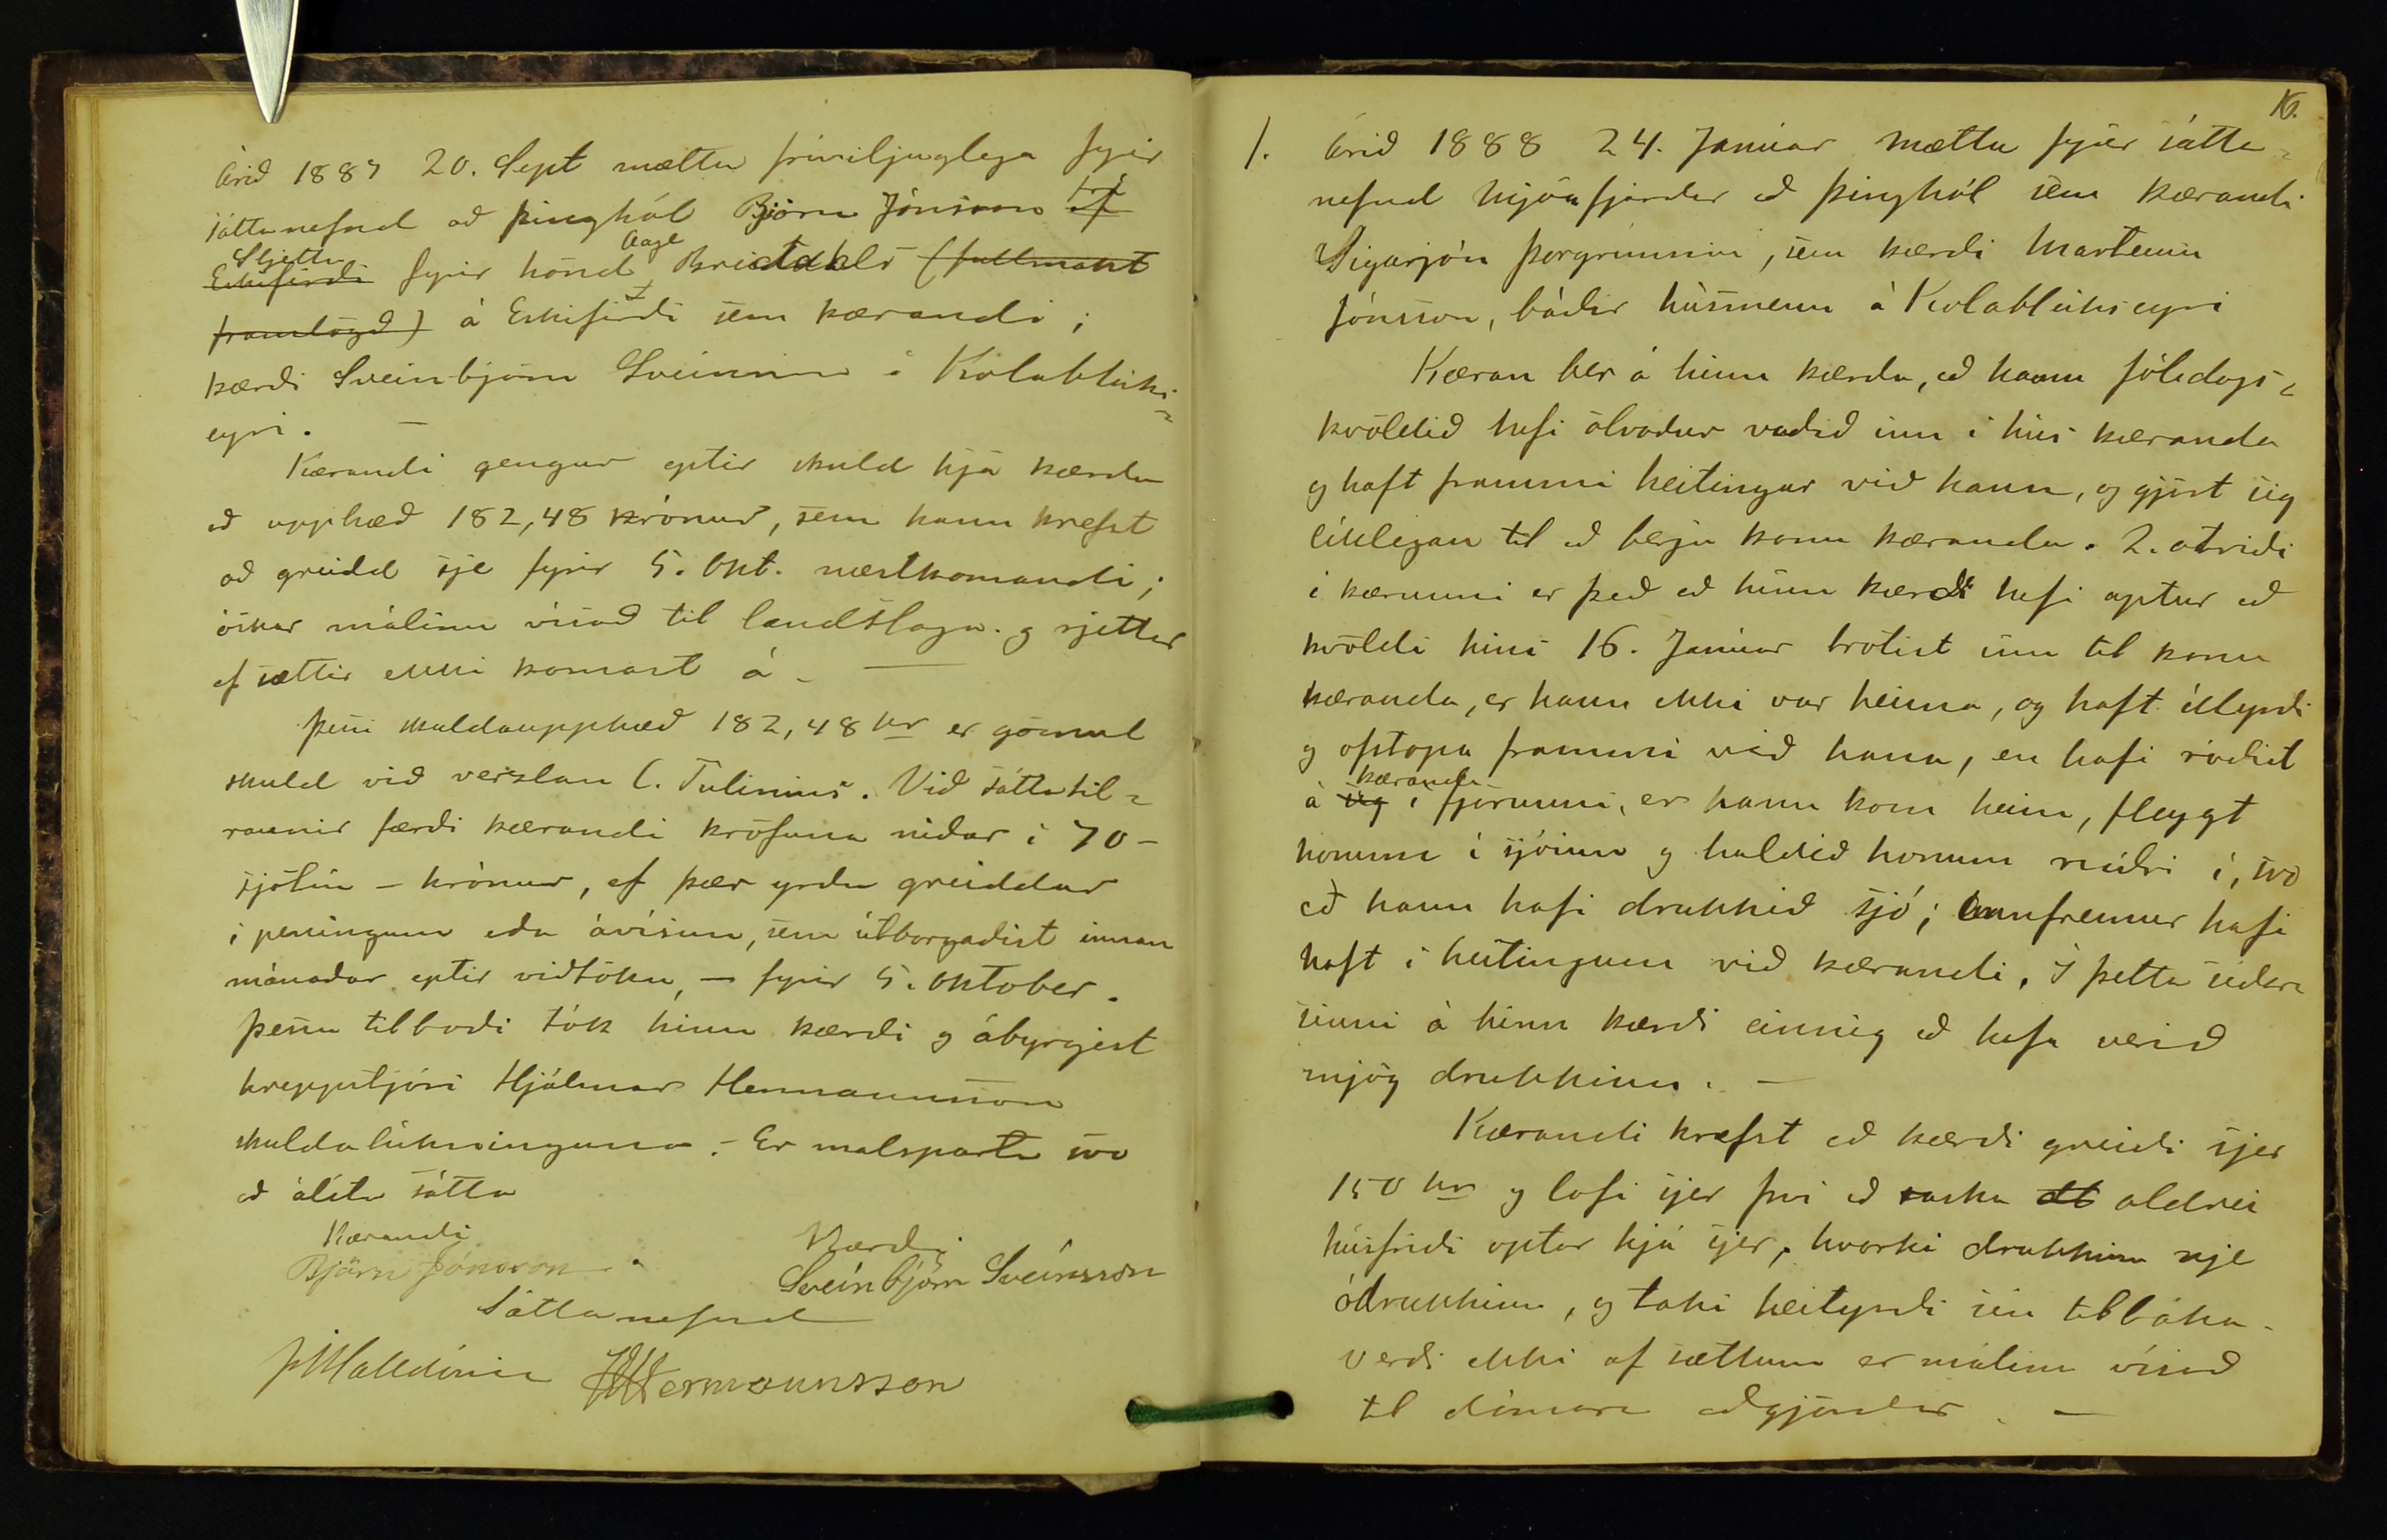 Árið 1887 20. Sept mættu fríviljuglega fyrir
sáttanefnd að Þinghól Björn Jónsson frá
Sljettu
Eskifirði fyrir hönd Aage Breiddahls (fullmakt
framlögð) á Eskifirði sem kærandi;
kærði Sveinbjörn Sveinsson á Kolableiks-
eyri. —
Kærandi gengur eptir skuld hjá kærðu
að upphæð 182,48 krónur, sem hann krefst
að greidd sje fyrir 5. Okt. næstkomandi;
óskar málinu vísað til landslaga og rjettar
ef sættir ekki komast á. —
Þessi skuldaupphæð 182,48 kr er gömul
skuld við verzlan C. Tulinius. Við sáttatil-
raunir færði kærandi kröfuna niður í 70 -
sjötíu - krónur, ef þær yrðu greiddar
í peningum eða ávísun, sem útborgaðist innan
mánaðar eptir viðtöku, — fyrir 5. október.
Þessu tilboði tók hinn kærði og ábyrgist
hreppstjóri Hjálmar Hermannsson
skuldalúkninguna. - Er malsparta svo
að álíta sátta
Kærandi
Björn Jónsson
Kærði
Sveinbjörn Sveinsson
Sáttanefnd
HHermannsson
16.
1. Árið 1888 24. Janúar mættu fyrir sátta-
nefnd Mjóafjarðar að Þinghól sem kærandi
Sigurjón Þorgrímsson, sem kærði Marteinn
Jónsson, báðir húsmenn á Kolableikseyri
Kæran ber á hinn kærða, að hann jóladags-
kvöldið hafi ölvaður vaðið inn í hús kæranda
og haft frammi heitingar við hann, og gjört sig
líklegan til að berja konu kæranda. 2. atriði
í kærunni er það að hinn kærði hafi aptur að
kvöldi hins 16. Janúar brotist inn til konu
kæranda, er hann ekki var heima, og haft illyrði
og ofstopa frammi við hana, en hafi ráðist
kæranda
á sig í fjörunni, er hann kom heim, fleygt
honum í sjóinn og haldið honum niðri í, svo
að hann hafi drukkið sjó; ennfremur hafi
haft í heitingum við kærandi. Í þetta síðara
sinni á hinn kærði einnig að hafa verið
mjög drukkinn. —
Kærandi krefst að kærði greiði sjer
150 kr og lofi sjer því að raska aldrei
húsfriði optar hjá sjer, hvorki drukkinn nje
ódrukkinn, og taki heityrði sín tilbaka.
Verði ekki af sættum er málinu vísað
til dómara aðgjörðar. —